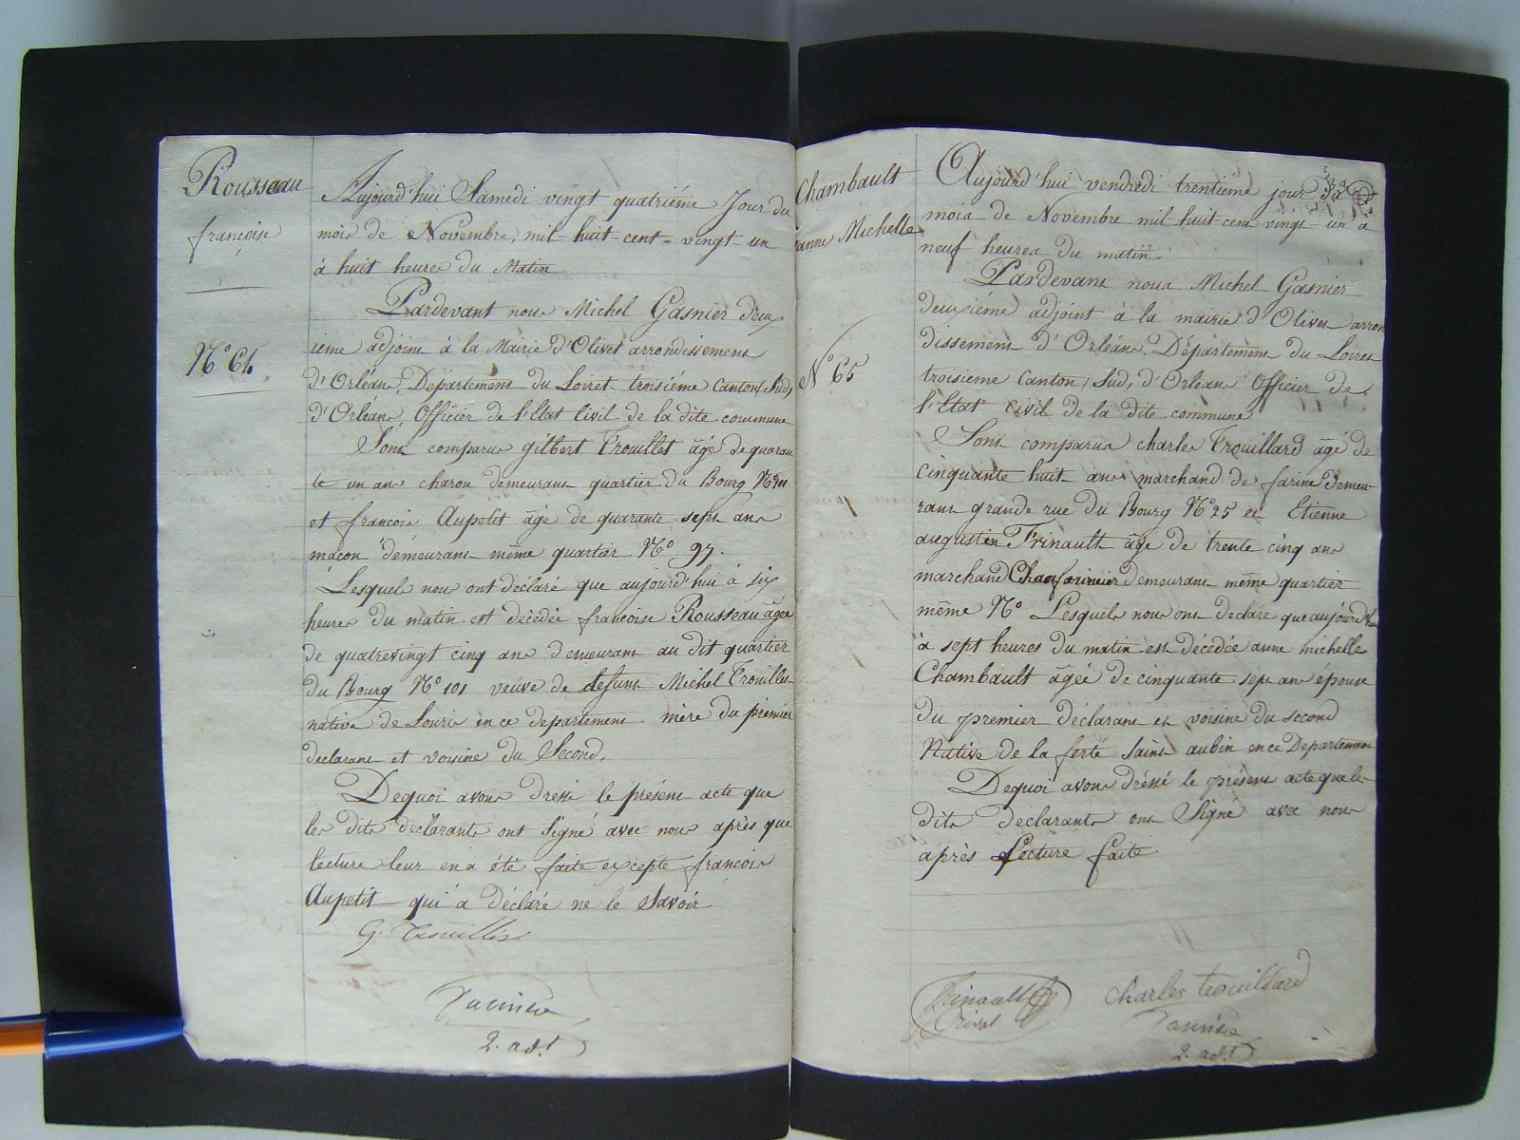 Rousseau
françoise
N° 64
Aujourd'hui Samedi vingt quatriéme Jour du
mois de Novembre, mil huit cent vingt un
à huit heures du Matin
Pardevant nous Michel Gasnier deux
ieme adjoint à la Mairie d'Olivet arrondissement
d'Orléans, Département du Loiret troisiéme Canton, Sud,
d'Orléans, Officier de l'Etat Civil de la dite commune
Sont comparus gilbert Trouillet âgé de quaran
te un ans charon demeurant quartier du Bourg N°
et françois Aupetit âgé de quarante sept ans
maçon demeurant même quartier N° 97.
Lesquels nous ont déclaré que aujourd'hui à six
heures du matin est décédée françoise Rousseau âgée
de quatrevingt cinq ans demeurant au dit quartier
du Bourg N° 101 veuve de defunt Michel Trouillet
native de Louris en ce departement mère du premier
declarant et voisine du Second.
Dequoi avons dressé le présent acte que
les dits déclarants ont signé avec nous après que
lecture leur en a été faite excepté françois
Aupetit qui a déclaré ne le savoir
G. Trouillet
2. adj.t
Chambault
anne Michelle
N° 65
Aujourd'hui vendredi trentieme jour du
mois de Novembre mil huit cent vingt un à
neuf heures du matin
Pardevant nous Michel Gasnier
deuxiéme adjoint à la mairie d'Olivet arron
dissement d'Orléans, Département du Loiret
troisieme Canton, Sud, d'Orléans Officier de
l'Etat Civil de la dite commune
Sont comparus charles Trouillard âgé de
cinquante huit ans marchand de farine demeu-
rant grande rue du Bourg N° 25 et Etienne
augustin Frinault âgé de trente cinq ans
marchand demeurant même quartier
même N° Lesquels nous ont declaré que aujourd'hui
à sept heures du matin est décédée anne michelle
Chambault âgée de cinquante sept ans épouse
du premier déclarant et voisine du second
Native de la ferté Saint aubin en ce Departement
Dequoi avons dréssé le présent acte que les
dits declarants ont Signé avec nous
après Lecture faite
frinault
Charles trouillard
2. adj.t